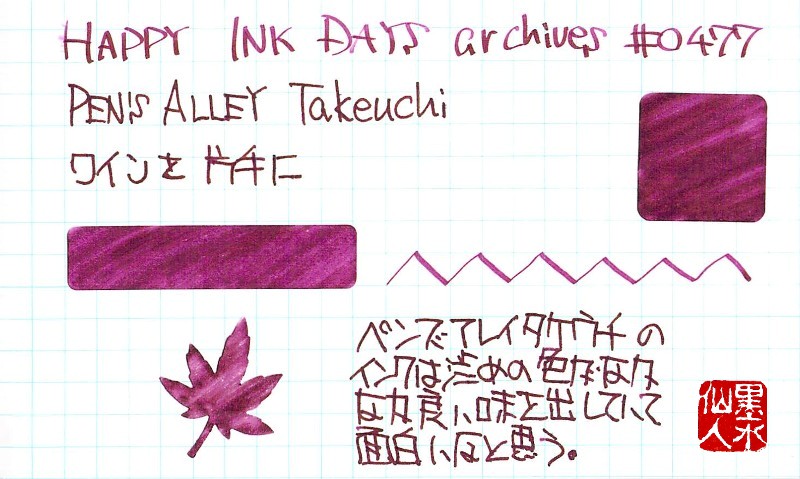 HAPPY INK DAYS archives #0477
PEN'S ALLEY Takeuchi
ワインを片手に
ペンズアレイタケウチの
インクは渋めの色がなか
なか良い味を出していて
面白いなと思う。
墨水
仙人